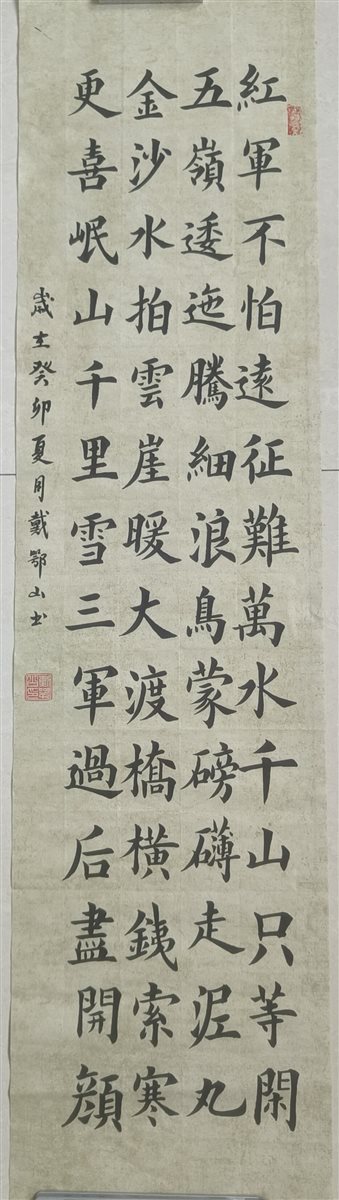 紅軍不怕遠征難萬水千山只等閑
五嶺逶迤騰細浪鳥蒙磅礴走泥丸
金沙水拍雲崖暖大渡橋橫銕索寒
更喜岷山千里雪三軍過后盡開顏
歲在癸卯夏月戴鄂山书